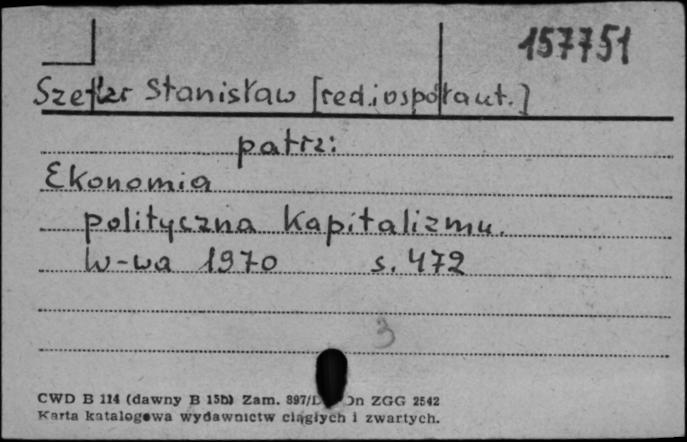 157751
Szefler Stanisław [red.i współaut.]
patrz:
Ekonomia
polityczna kapitalizmu.
W-wa 1970 s. 472
3
CWD B 114 (dawny B 15b) Zam. 897/D On ZGG 2542
Karta katalogowa wydawnictw ciągłych i zwartych.